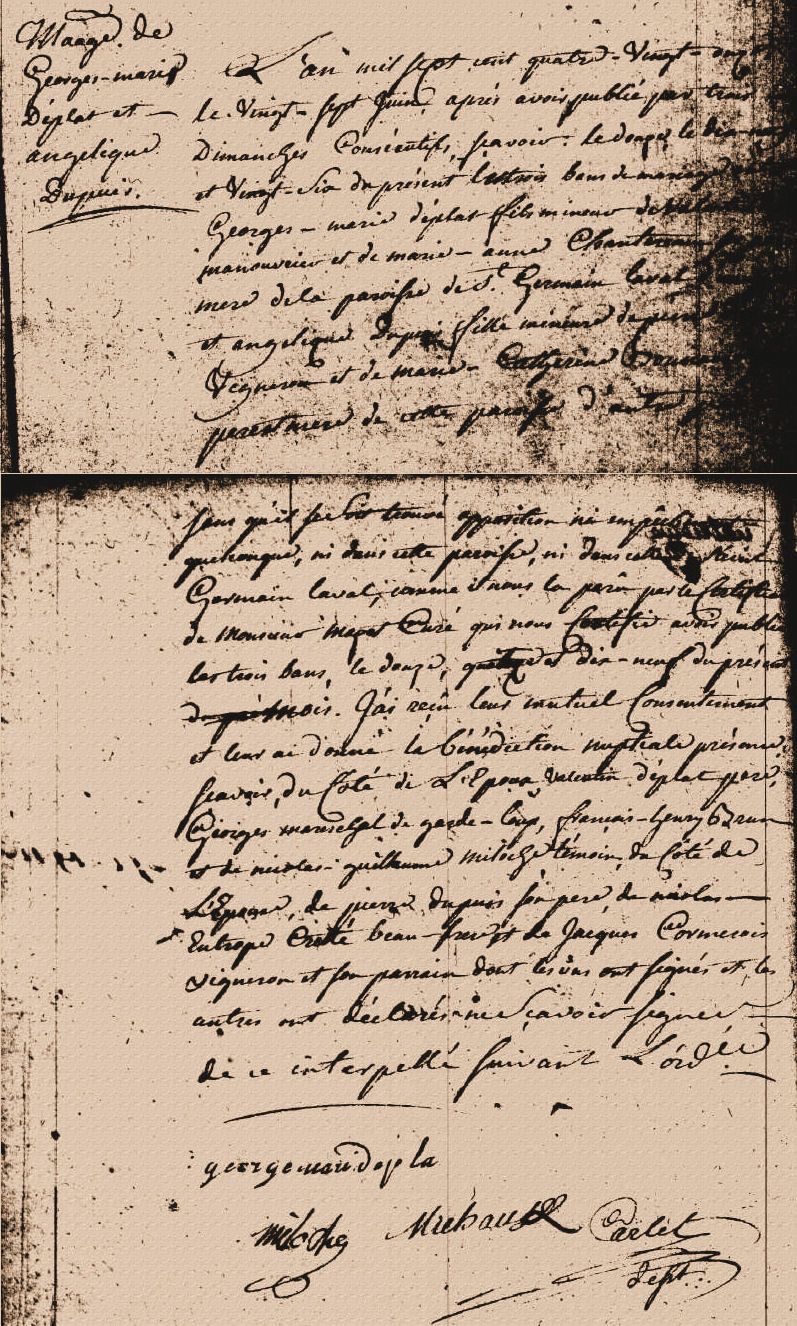 Maâge. de
Georges-marie
Déplat et
angelique
Dupuis.
L'an mil sept cent quatre-Vingt-douze
le Vingt-sept Juin, aprés avoir publié par trois
Dimanches Consécutifs, sçavoir: le douze, le dix-neuf
et Vingt-six du présent les trois bans de mariage
Georges-marie déplat fils mineur de
manouvrier et de marie-anne
mere de la paroisse de St. Germain laval
et angelique Dupuis fille mineure de pierre
Vigneron et de marie-Catherine
pere et mere de cette paroisse d'autre
sans qu'il se soit trouvé opposition ni
quelconque, ni dans cette paroisse, ni dans celle de Saint
Germain laval, comme il nous la parû par le Certificat
de Monsieur Curé qui nous Certifie avoir publié
les trois bans, le douze, et dix-neuf du présent
mois. J'ai reçu leur mutuel Consentement
et leur ai donné la bénédiction nuptiale présence,
scavoir, du Coté de L'Epoux Valentin déplat pere,
Georges mareschal de garde-loup, francois-henry Brun
et de nicolas-guillaume miloche témoin, du Coté de
L'Epouse, de pierre dupuis son pere de nicolas
Eutrope beau-frere et de Jacques Cormerois
vigneron et son parrain dont les uns ont signés et les
autres ont déclarés ne sçavoir signer
de ce interpellé suivant L'ordce
george mari depla
miloche Michault Carlet
dept.